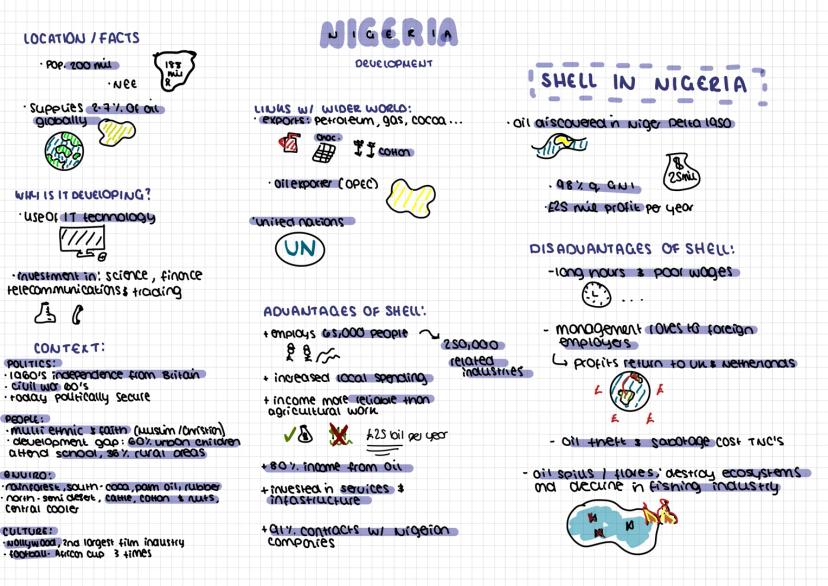 NIGERIA
DEVELOPMENT
LOCATION / FACTS
· POP. 200 mil
· NEE
188
mil
· Supplies 2.7% of oil
globally
WHY IS IT DEVELOPING?
· use of IT technology
· investment in: science, finance
telecommunications & trading
CONTEXT:
POLITICS:
· 1960's independence from Britain
· civil war 60's
· today politically secure
PEOPLE:
· multi ethnic & faith (muslim/christian)
· development gap: 60% urban children
attend school, 36% rural areas
ENVIRO:
· rainforest, south - coca, palm oil, rubber
· north - semi desert, cattle, cotton & nuts,
central cooler
CULTURE:
· Nollywood, 2nd largest film industry
· football - African cup 3 times
LINKS W/ WIDER WORLD:
· exports: petroleum, gas, cocoa...
choc.
cotton
· oil exporter (OPEC)
· united nations
UN
ADVANTAGES OF SHELL:
+ employs 65,000 people
250,000
related
industries
+ increased local spending
+ income more reliable than
agricultural work
£25 bil per year
+ 80% income from oil
+ invested in services &
infastructure
+ 91% contracts w/ Nigeian
companies
SHELL IN NIGERIA
· oil discovered in Niger Delta 1950
$
25mil
· 98% of GNI
· £25 mil profit per year
DISADVANTAGES OF SHELL:
- long hours & poor wages
...
- management roles to foreign
employers
↳ profits return to UK & Netherlands
£ £
£ £
- oil theft & sabotage cost TNC's
- oil spills / flores, destroy ecosystems
and decline in fishing industry